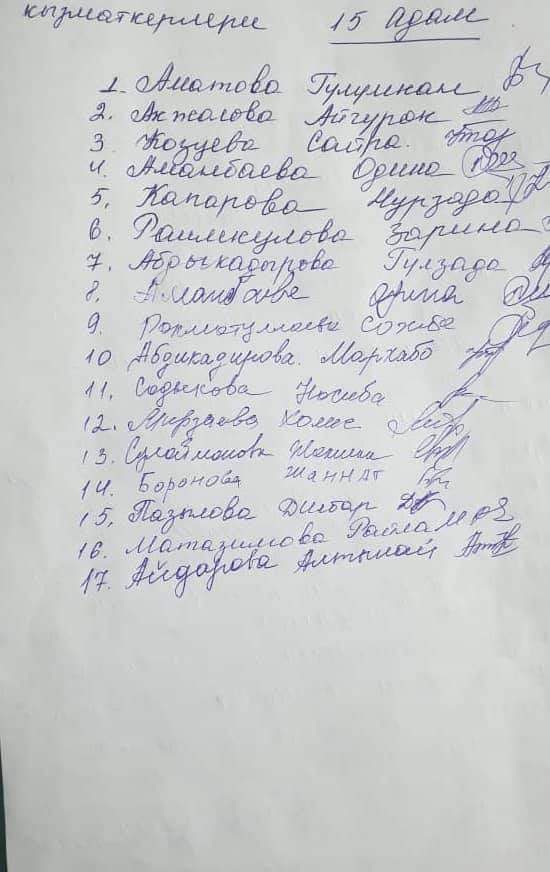 кызматкерлери 15 адам
1. Аматова Гулумкан
2. Акжалова Айгурак
3. Козуева Сайра.
4. Аманбаева Одина
5, Капарова Нурзада
6. Раимкулова Зарина
7. Абдыкадырова Гулзада
8. Аманбаева Одина
9. Рахматуллаева
10 Абдикадирова. Мархабо
11. Содыкова Носиба
12. Мирзаева
13. Сулаймонова
14. Боронова Жаннат
15, Пазылова Дилбар
16. Матазимова Раъно
17. Айдарова Алтынай